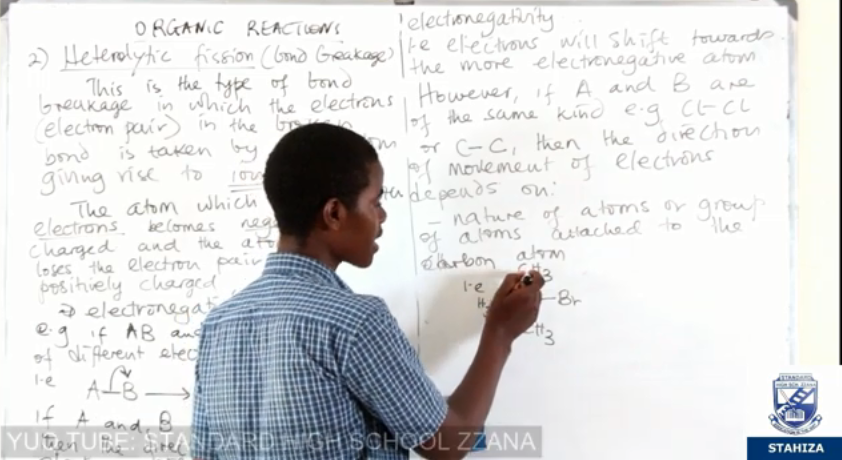 ORGANIC REACTIONS
2) Heterolytic fission (bond breakage)
This is the type of bond
breakage in which the electrons
(electron pair) in the broken
bond is taken by
giving rise to
The atom which
electrons becomes
charged and the
loses the electron pair
positively charged
e.g if AB
of different
i.e A-B →
If A and B
then the
electronegativity
i.e electrons will shift towards
the more electronegative atom
However, if A and B are
of the same kind e.g Cl-Cl
or C-C, then the direction
of movement of electrons
depends on:
- nature of atoms or group
of atoms attached to the
carbon atom
i.e CH3
-Br
YOUTUBE: STANDARD HIGH SCHOOL ZZANA
STANDARD
HIGH SCH. ZZANA
STAHIZA